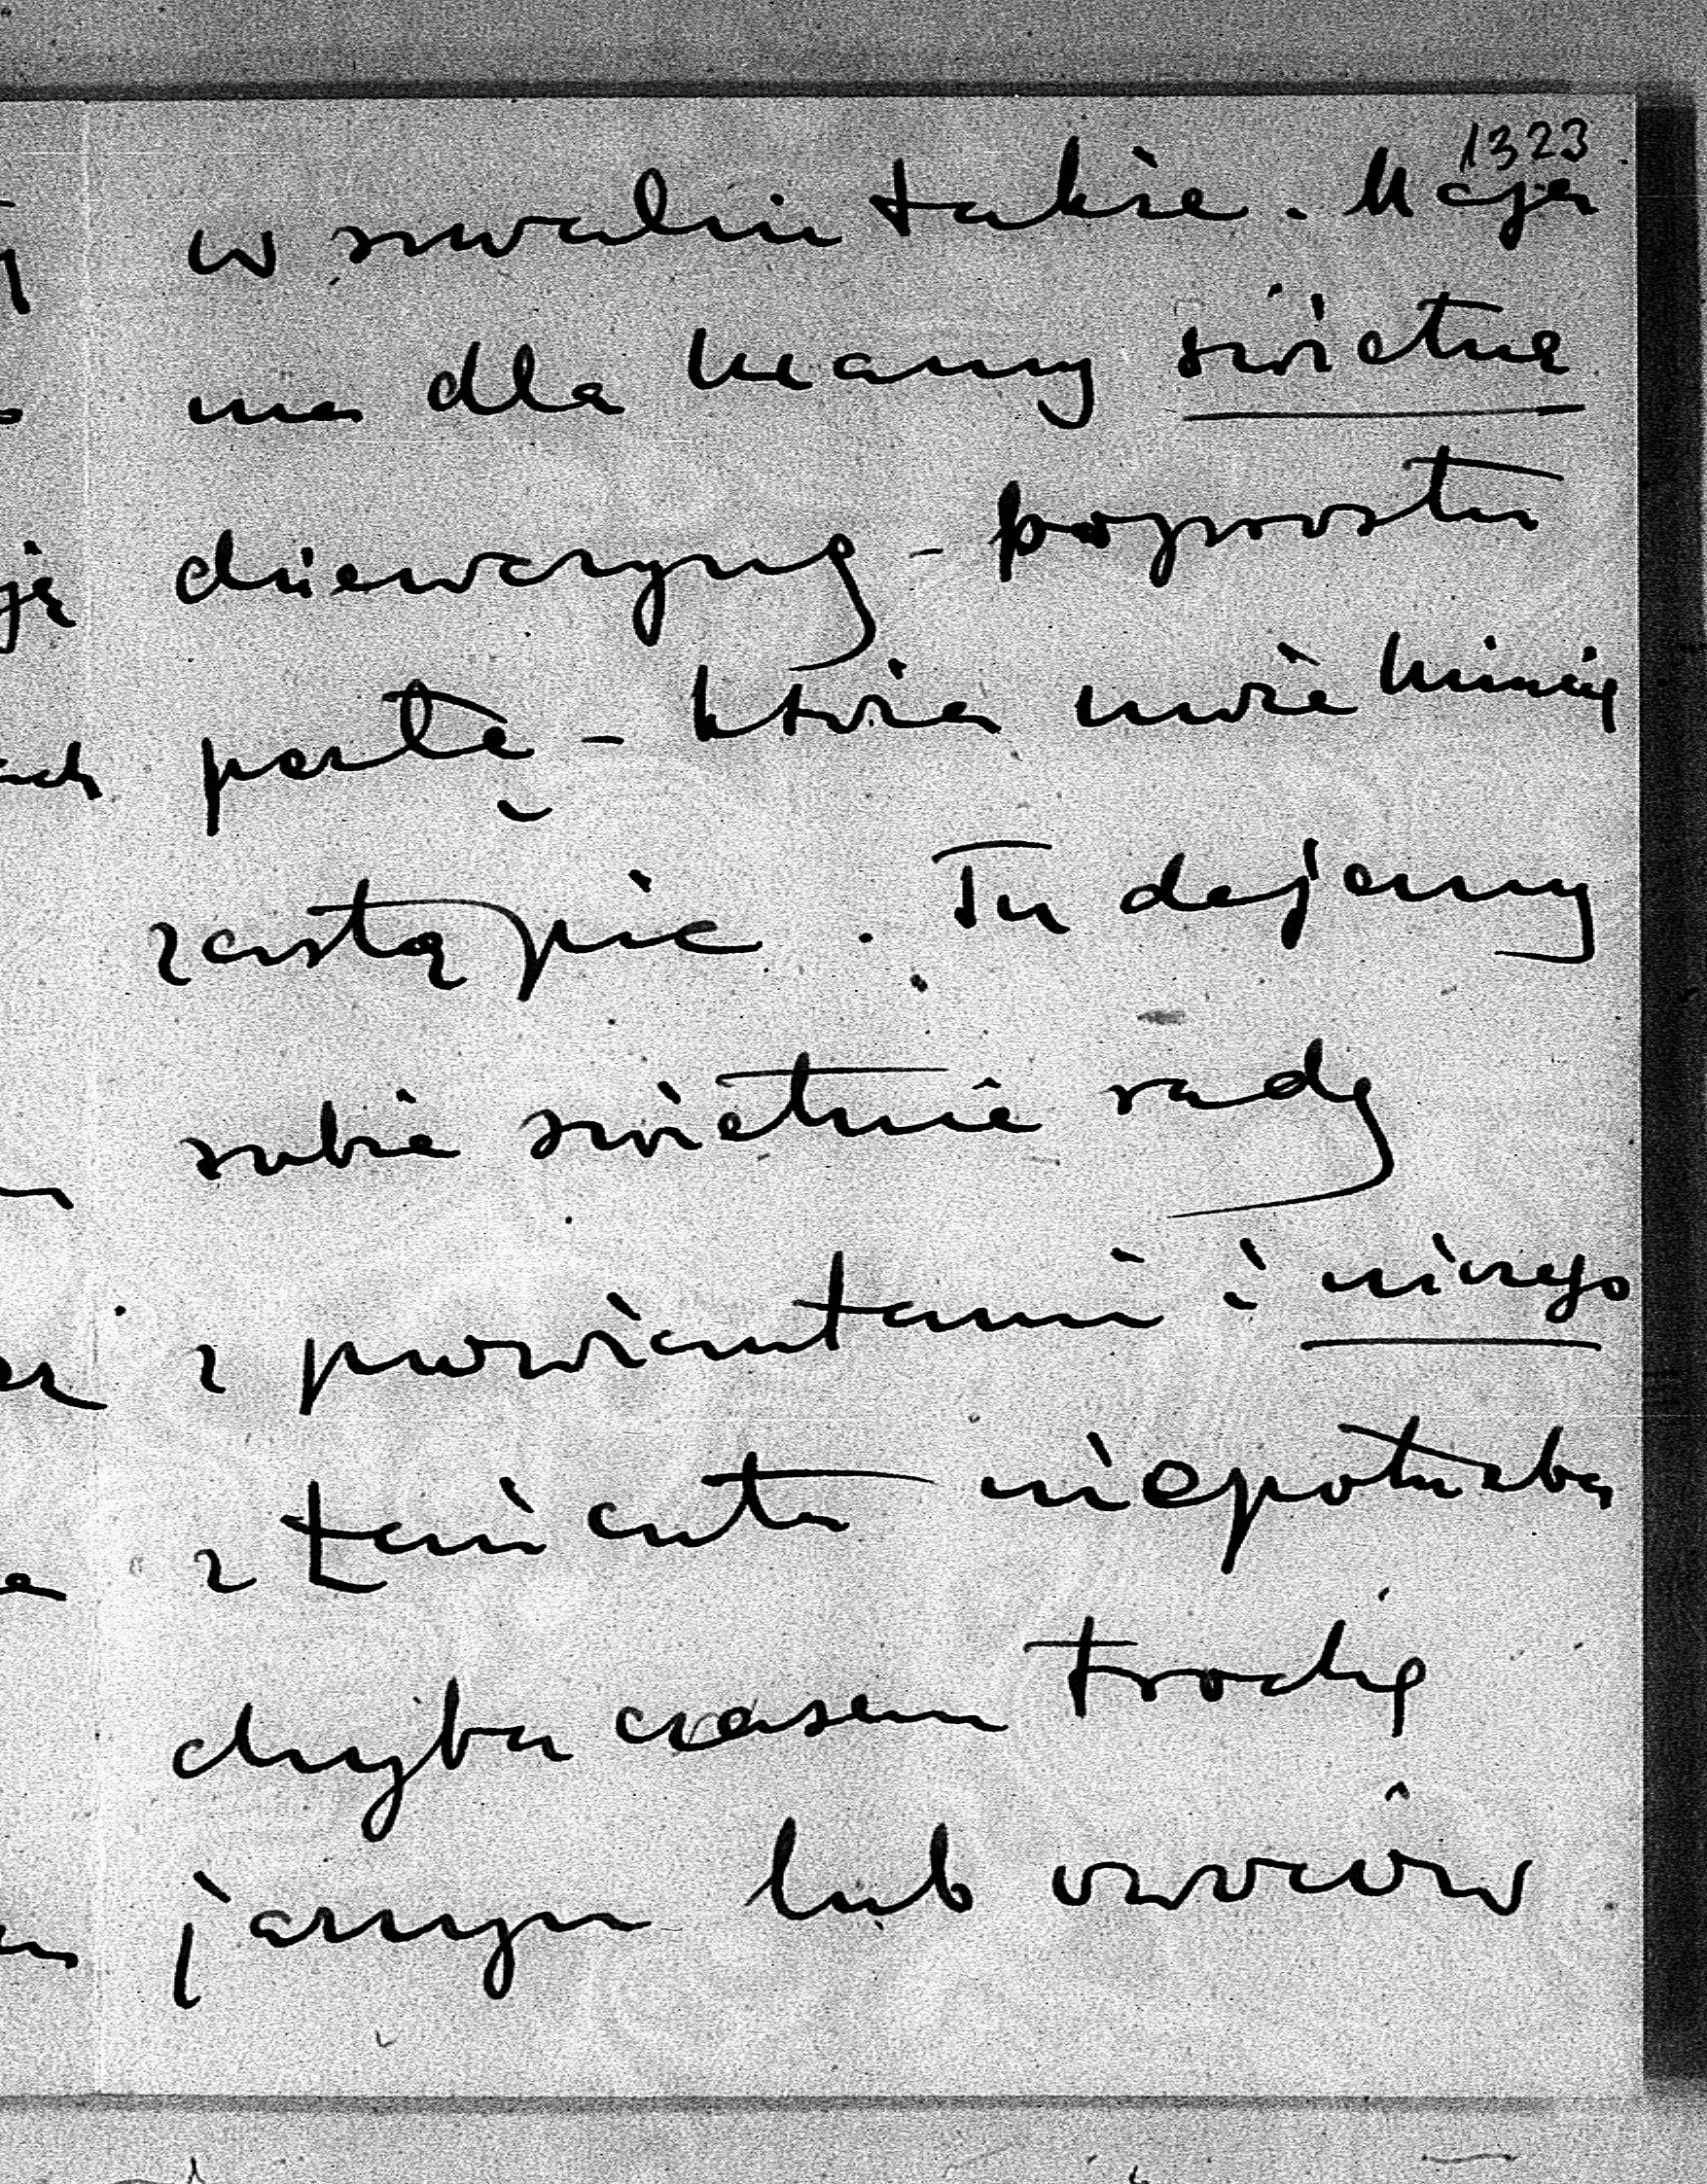 1323
w suwalni także. Maja
ma dla Mamy świetną
dziewczynę – poprostu
perłę – która może Mimię
zastąpić. Tu dajemy
sobie świetnie radę
z prowiantami i niczego
z Łańcuta niepotrzeba
chyba czasem trochę
jarzyn lub owoców